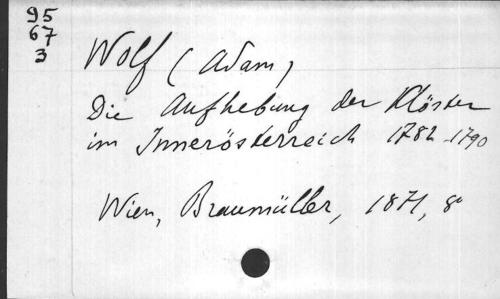 95
67
3
Wolf (Adam)
Die Aufhebung der Klöster
im Innerösterreich 1782-1790
Wien, Braumüller, 1871, 8°